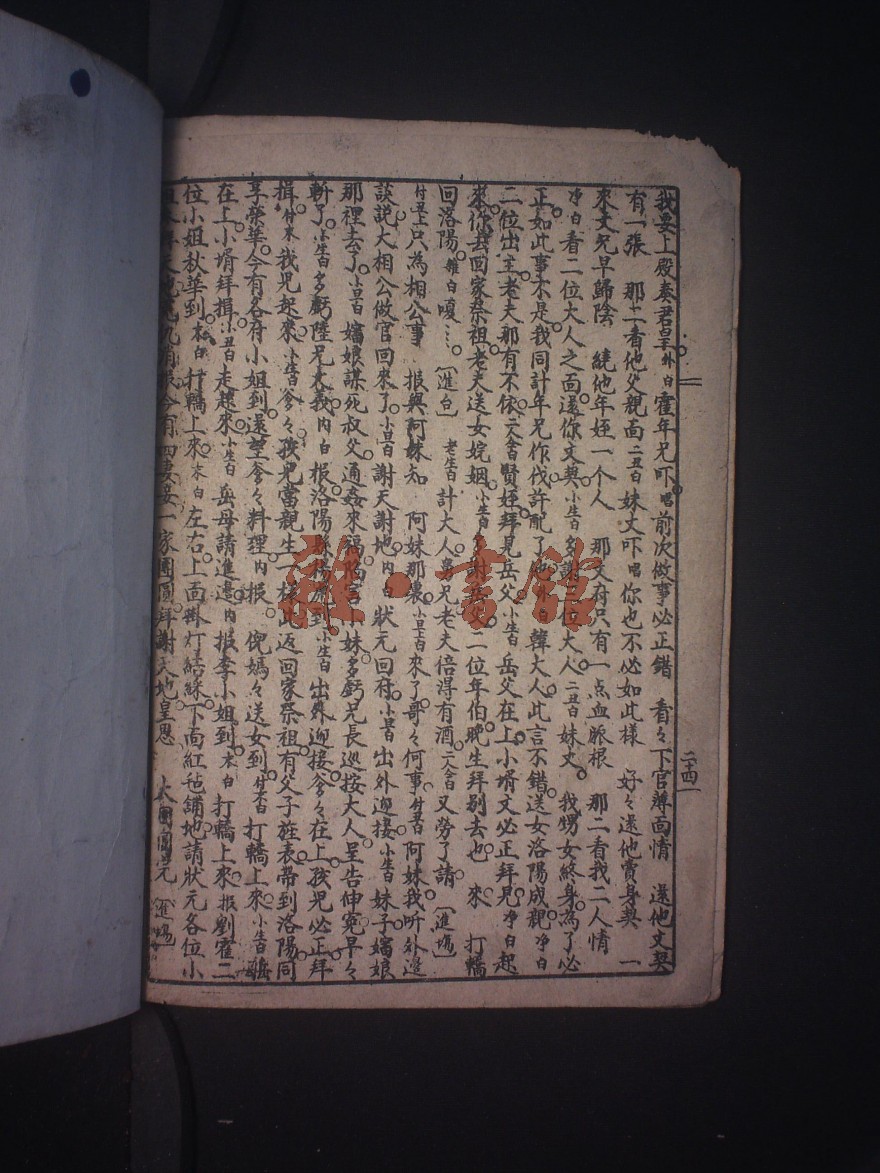 我要上殿奏君王外白霍年兄吓唱前次做事必正錯 看々下官薄面情 还他文契
有一張 那二看他父親面二丑白妹丈吓唱你也不必如此樣 好々还他賣身契 一
來丈兄早歸陰 繞他年姪一个人 那文府只有一点血脈根 那二看我二人情
净白看二位大人之面还你文契小生白多謝二位大人二丑白妹丈 我甥女終身為了必
正如此事不是我同計年兄作伐許配了他外白韓大人此言不錯送女洛陽成親净白
二位出主老夫那有不依二人仝白賢姪拜見岳父小生白岳父在上小壻文必正拜見净白起
來你去回家祭祖老夫送女婉姻小生白多謝岳父二位年伯晚生拜别去也 來 打轎
回洛陽雜白嗄…〔進白〕 老生白計大人 兄老夫倍得有酒二人仝白又勞了請〔進場〕
付丑上只為相公事 报與阿妹知 阿妹那裏小旦上白來了哥々何事付丑白阿妹我听外邊
談説大相公做官回來了小旦白謝天謝地内白狀元回府小旦白出外迎接小生白妹子嬸娘
那裡去了小旦白嬸娘謀死叔父通姦來福 小妹多虧兄長巡按大人呈告伸冤早々
斬了小生白多虧陸兄大義内白报洛陽縣 到小生白出外迎接爹々在上孩兒必正拜
揖付末我兒起來小生白爹々孩兒當親生一樣此返回家祭祖有父子旌表帶到洛陽同
享榮華今有各府小姐到还望爹々料理内报 倪媽々送女到付末白打轎上來小生白
在上小壻拜揖小丑白走起來小生白岳母請進邊内报李小姐到末白打轎上來报劉霍二
位小姐秋華到末白打轎上來末白左右上面掛灯結綵下面紅毡鋪地請狀元各位小
今有四妻妾一家團圓拜謝天地皇恩 大團圓完〔進場〕
二十四
雜·書館